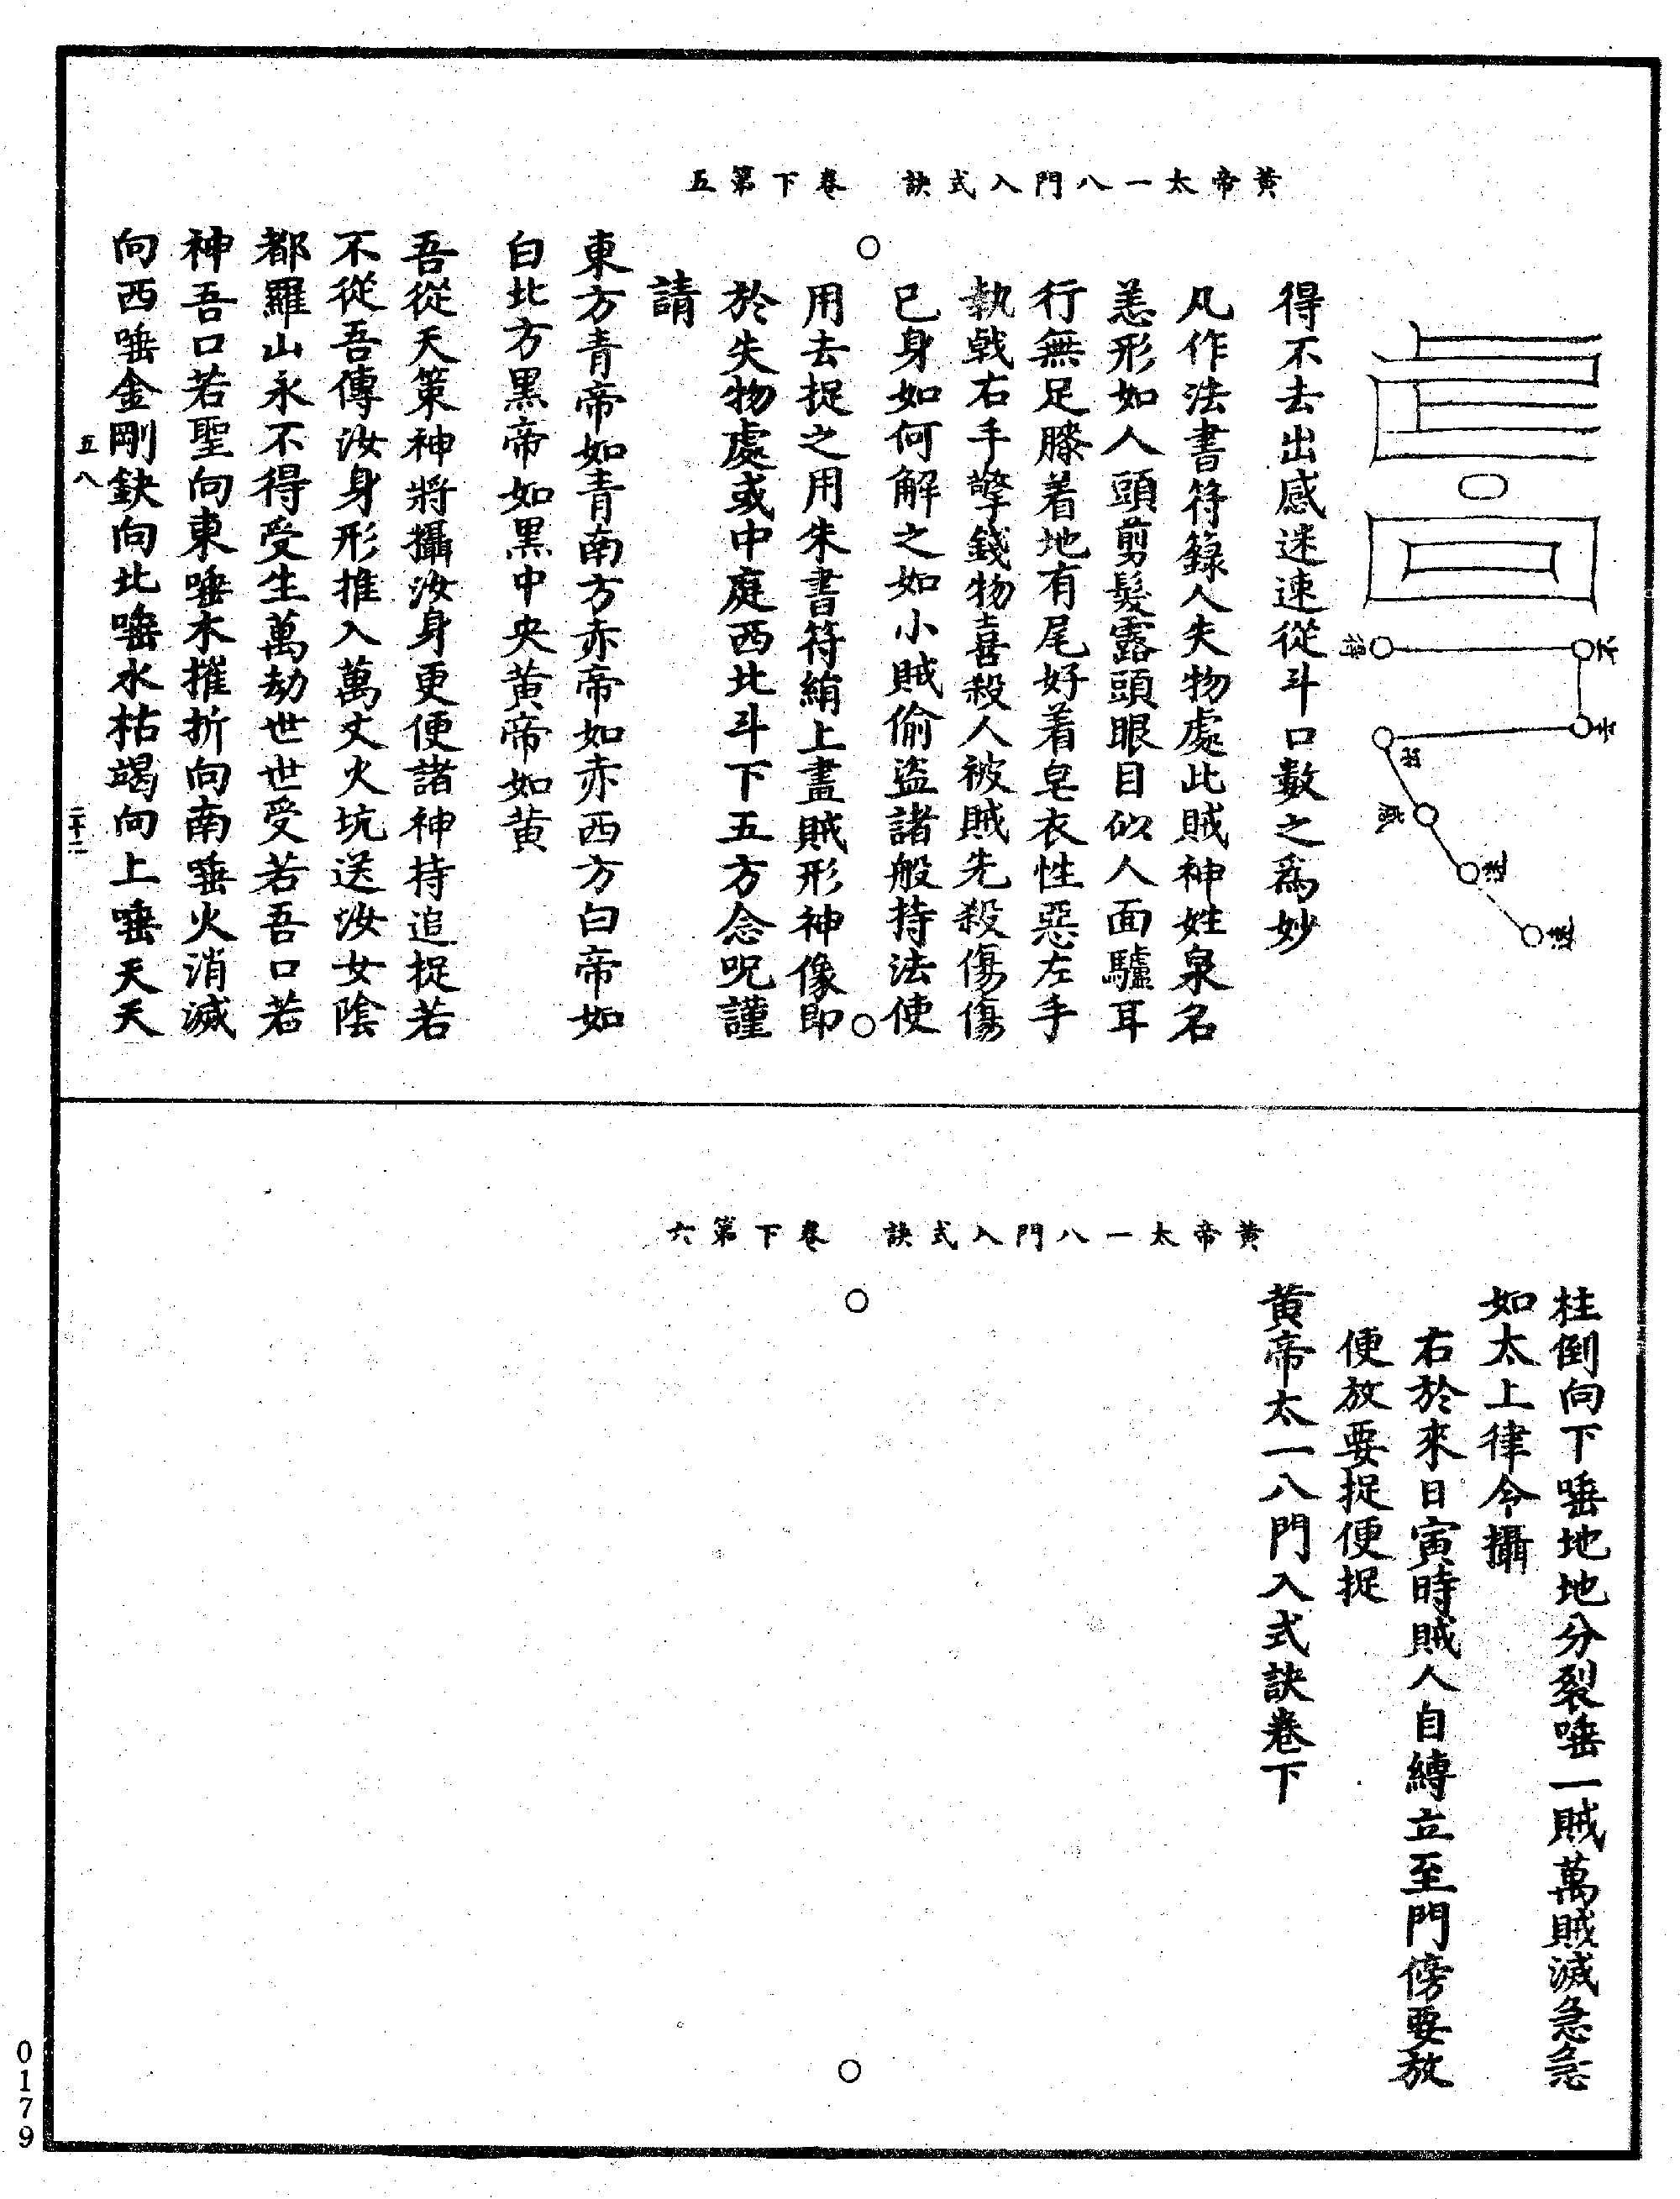 黃帝太一八門入式訣　卷下第五
得不去出惑迷速從斗口數之爲妙
凡作法書符籙人失物處此賊神姓泉名
恙形如人頭剪髮露頭眼目似人面驢耳
行無足膝着地有尾好着皂衣性惡左手
執戟右手擎錢物喜殺人被賊先殺傷傷
已身如何解之如小賊偷盜諸般持法使
用去捉之用朱書符絹上畫賊形神像即
於失物處或中庭西北斗下五方念呪謹
請
東方青帝如青南方赤帝如赤西方白帝如
白北方黑帝如黑中央黃帝如黃
吾從天策神將攝汝身更便諸神持追捉若
不從吾傳汝身形推入萬丈火坑送汝女陰
都羅山永不得受生萬劫世世受若吾口若
神吾口若聖向東唾木摧折向南唾火消滅
向西唾金剛鈌向北唾水枯竭向上唾天天
五八　二十二
黃帝太一八門入式訣　卷下第六
柱倒向下唾地地分裂唾一賊萬賊滅急急
如太上律令攝
右於來日寅時賊人自縛立至門傍要放
便放要捉便捉
黃帝太一八門入式訣卷下
0179